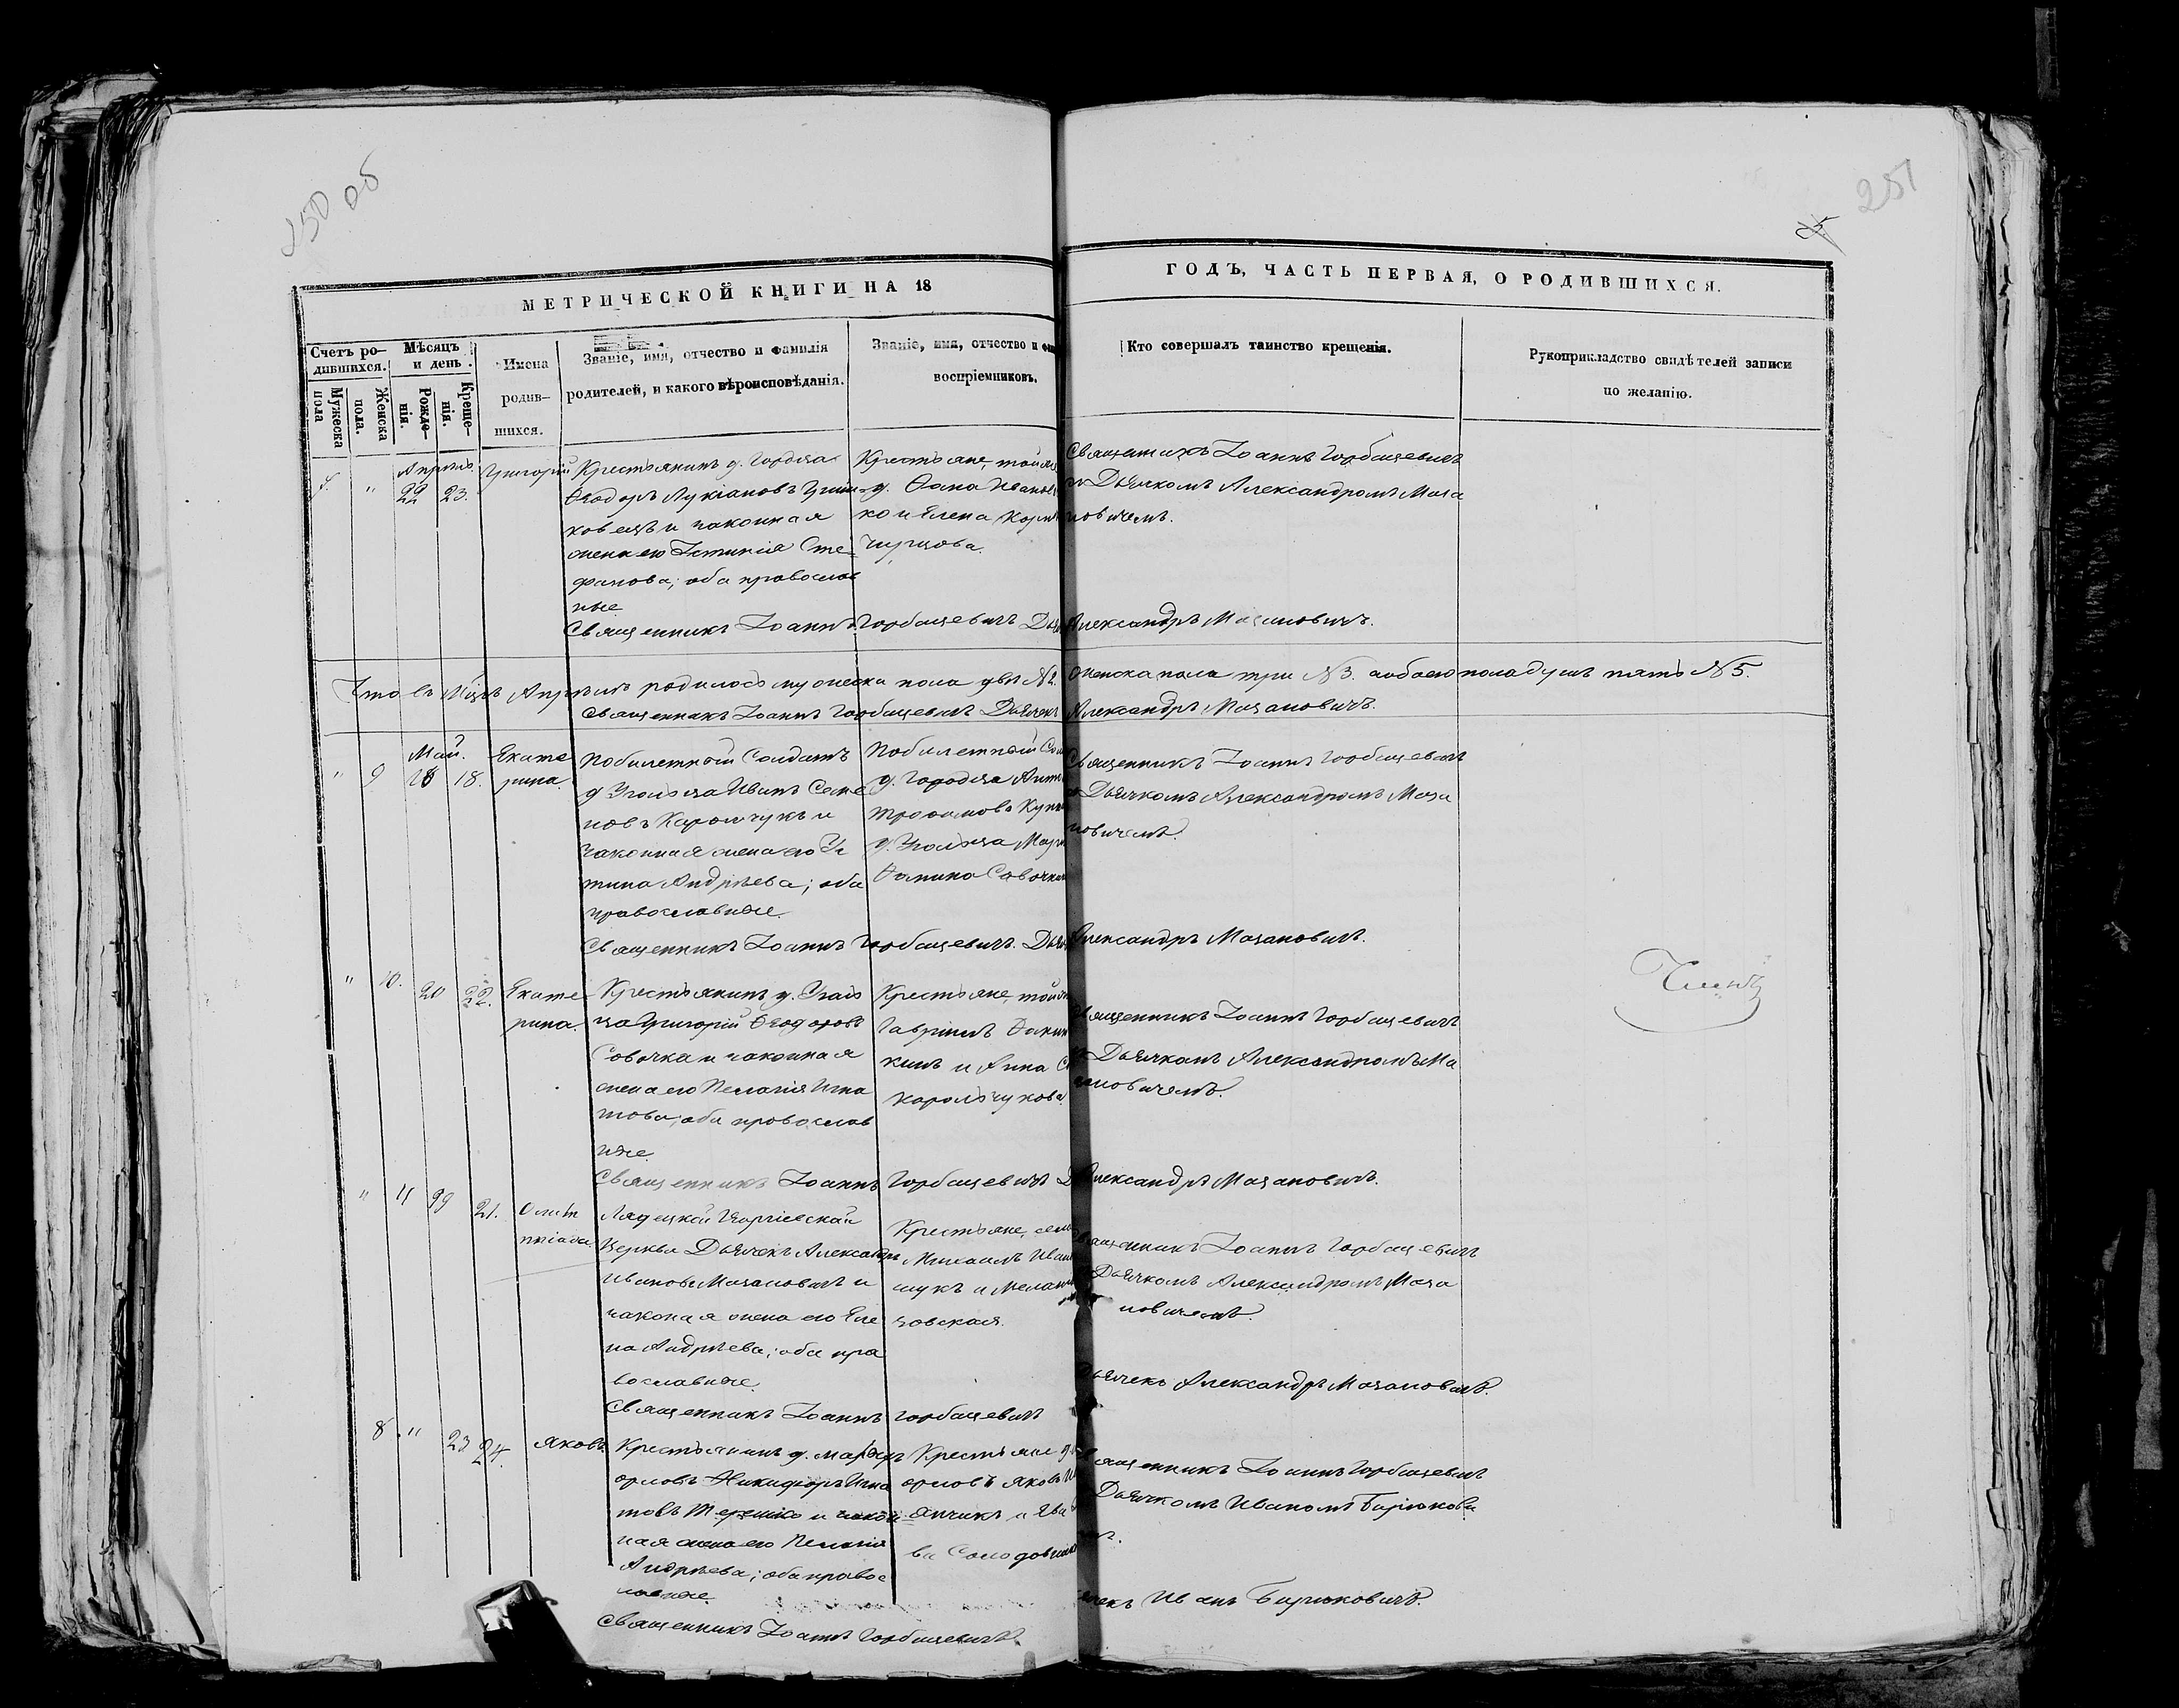 150 об
251
МЕТРИЧЕСКОЙ КНИГИ НА 18
ГОДЪ, ЧАСТЬ ПЕРВАЯ, О РОДИВШИХСЯ.
Счетъ ро-
дившихся.
Мужеска
пола
Женска
пола.
Мѣсяцъ
и день.
Рожде-
нія.
Креще-
нія.
Имена
родив-
шихся.
Званіе, имя, отчество и фамилія
родителей, и какого вѣроисповѣданія.
Званіе, имя, отчество и
воспріемниковъ.
Кто совершалъ таинство крещенія.
Рукоприкладство свидѣтелей записи
по желанію.
Апрѣль
" 22 23.
Григорій
Крестьянинъ д. Городца
Ѳеодоръ Лукіановъ
и законная
жена его Іустинія Сте
фанова; оба православ
ные
Крестьяне, той
д. Ѳома
ко и Елена
Священникъ Іоаннъ Горбацевичъ
съ Дьячкомъ Александромъ Маза
новичемъ.
Священникъ Іоаннъ Горбацевичъ
Александръ Мазановичъ.
Что въ Мцѣ Апрѣлѣ родилось мужеска пола два №2. женска пола три №3. а обоего пола душъ пять №5.
Священникъ Іоаннъ Горбацевичъ Дьячекъ Александръ Мазановичъ.
Май.
" 9 18.
Екате
рина.
Побилетный Солдатъ
д Угольца Иванъ Семе
новъ Каромчукъ и
законная жена его Ус
тина Андрѣева; оба
православные.
Побилетный
д. Городца
д. Угольца
Ѳомина
Священникъ Іоаннъ Горбацевичъ
Дьячкомъ Александромъ Маза
новичемъ.
Священникъ Іоаннъ Горбацевичъ.
Александръ Мазановичъ.
" 10. 20 22.
Екате
рина.
Крестьянинъ д. Уголь
ца Григорій Ѳеодоровъ
Совочка и законная
жена его Пелагія Игна
това; оба православ
ные.
Крестьяне, той
Гавріилъ
и Анна
Корольчукова.
Священникъ Іоаннъ Горбацевичъ
Дьячкомъ Александромъ Ма
зановичемъ.
Священникъ Іоаннъ Горбацевичъ
Александръ Мазановичъ.
" 11 21.
Олим
піада.
Лядецкой Георгіевской
Церкви Дьячекъ Александръ
Ивановъ Мазановичъ и
законая жена его Еле
на Андрѣева; оба пра
вославные.
Крестьяне,
Михаилъ
щукъ и
зовская.
Священникъ Іоаннъ Горбацевичъ
Дьячкомъ Александромъ Маза
новичемъ.
Дьячекъ Александръ Мазановичъ.
Священникъ Іоаннъ Горбацевичъ
8 " 23 24.
Яковъ
Крестьянинъ д.
орловъ Никифоръ Игна
товъ Терешко и закон
ная жена его Пелагія
Андрѣева; оба правос
лавные.
Крестьяне
орловъ Яковъ
Янчикъ и Ева
Священникъ Іоаннъ Горбацевичъ
Дьячкомъ Иваномъ Бирюкови
Иванъ Бирюковичъ.
Священникъ Іоаннъ Горбацевичъ.